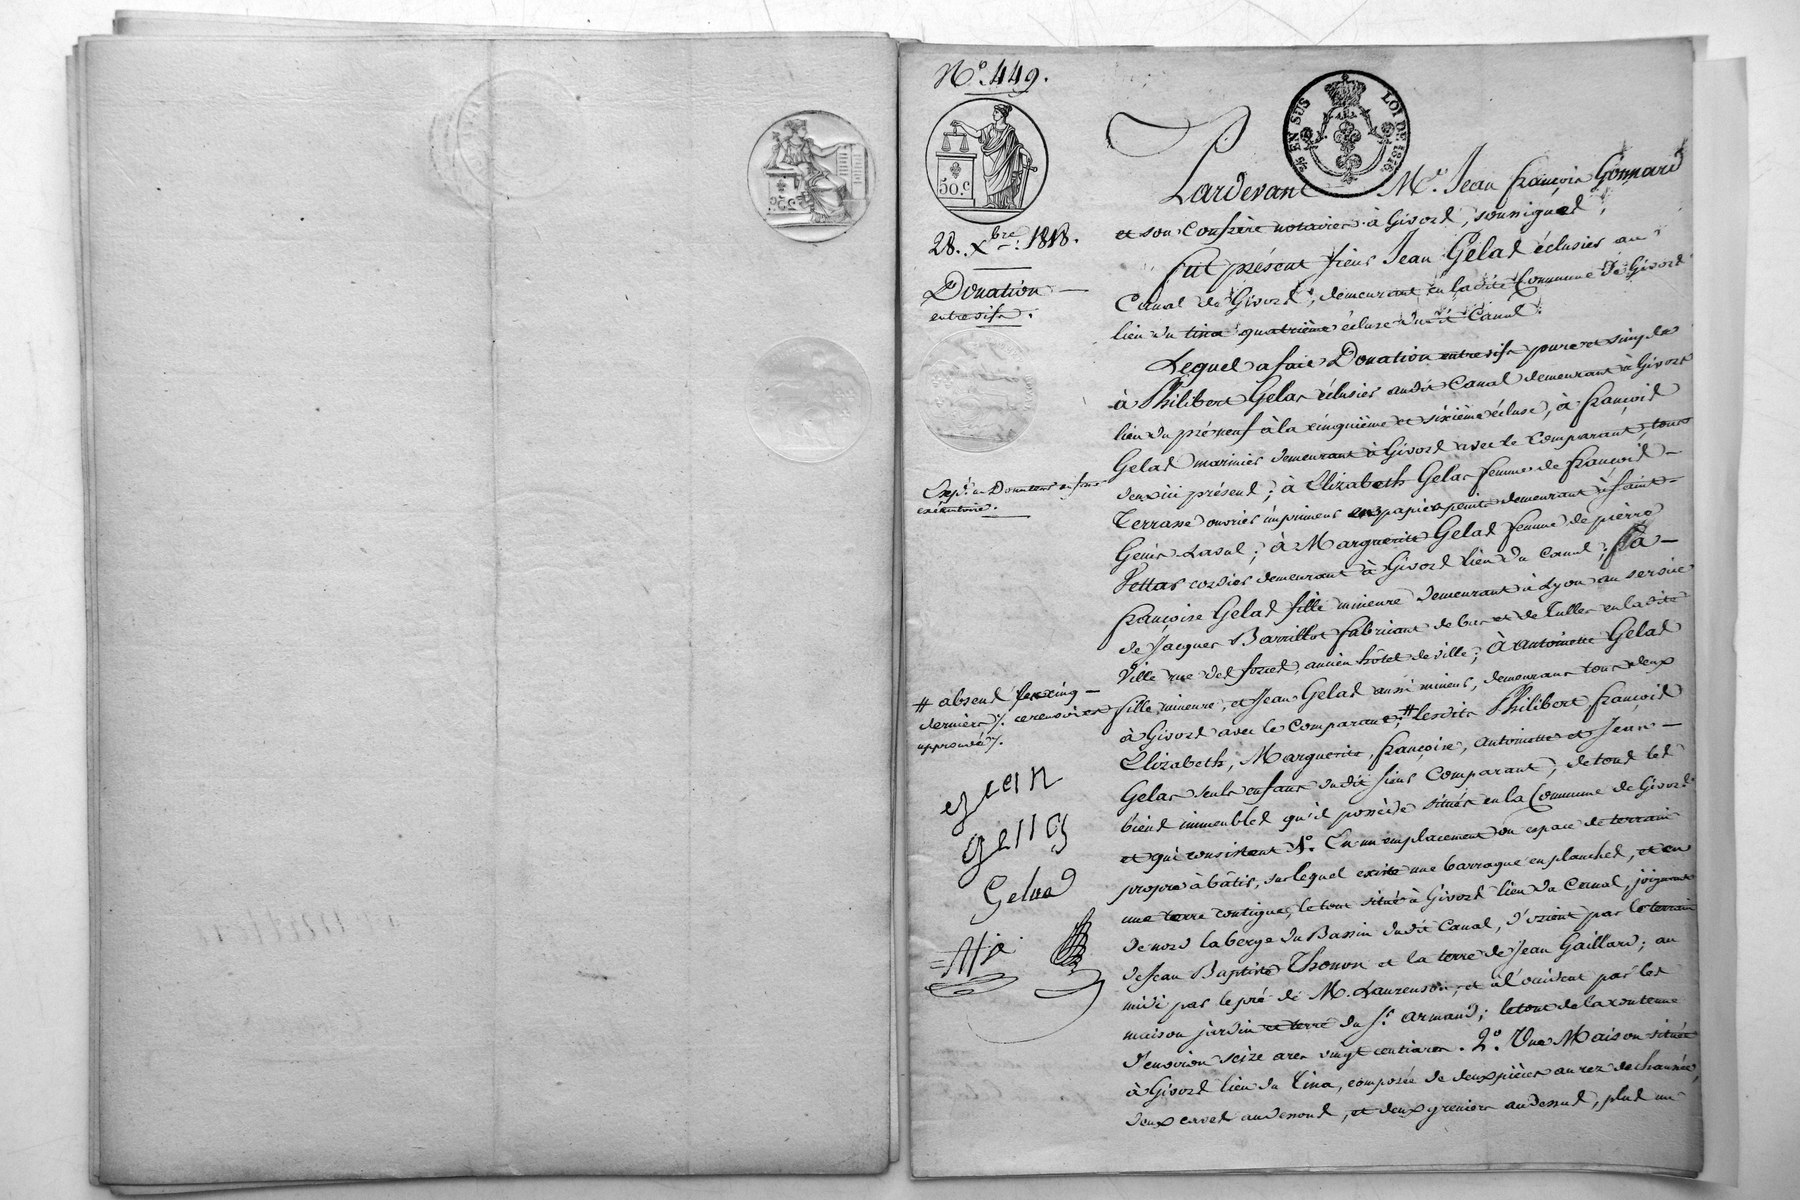 N.° 449.
50.c
28. Xbre. 1818.
Donation
entrevifs.
25c.
Exp.on au Donateur en forme
exécutoire.
# absens
derniers ./. ce renvoi est
approuvé ./.
jean
gellas
Gelas
¼ EN SUS LOI DE 1816.
Pardevant M.e Jean françois Gonnard
et son Confrère notaires à Givors, soussignés,
fut présent sieur Jean Gelas éclusier au
Canal de Givors, demeurant en ladite Commune de Givors
lieu du tina quatrième écluse dudit Canal.
Lequel a fait Donation entrevifs pure et simple
à Philibert Gelas éclusier audit Canal demeurant à Givors
lieu du pré neuf à la cinquième et sixième écluse, à françois
Gelas marinier demeurant à Givors avec le comparant, tous
deux ici présens ; à Elizabeth Gelas femme de françois
Terrasse ouvrier imprimeur en papiers peints demeurant à Saint-
Genis Laval ; à Marguerite Gelas femme de pierre
Pettar cordier demeurant à Givors lieu du Canal ; à
françoise Gelas fille mineure demeurant à Lyon au service
de Jacques Barrillot fabricant de bas et de Tulles en ladite
Ville rue des forces, ancien hôtel de ville ; à Antoinette Gelas
fille mineure, et Jean Gelas aussi mineur, demeurans tous deux
à Givors avec le Comparant ; # Lesdits Philibert françois
Elizabeth, Marguerite, françoise, antoinette et Jean
Gelas seuls enfans dudit sieur Comparant ; de tous les
biens immeubles qu'il possède situés en la Commune de Givors
et qui consistent 1.° En un emplacement ou espace de terrain
propre à bâtir, sur lequel existe une barraque en planches, et en
une terre contigue, le tout situé à Givors lieu du Canal, joignant
de nord la berge du Bassin dudit Canal, d'orient par le terrain
de Jean Baptiste Thonon et la terre de Jean Gaillard ; au
midi par le pré de M. Laurenson, et à l'occident par les
maison jardin et terre du S.r armand ; le tout de la contenue
d'environ seize ares vingt centiares. 2.° Une Maison située
à Givors lieu du Tina, composée de deux pièces au rez de chaussée,
deux caves au dessous, et deux greniers au dessus, plus un